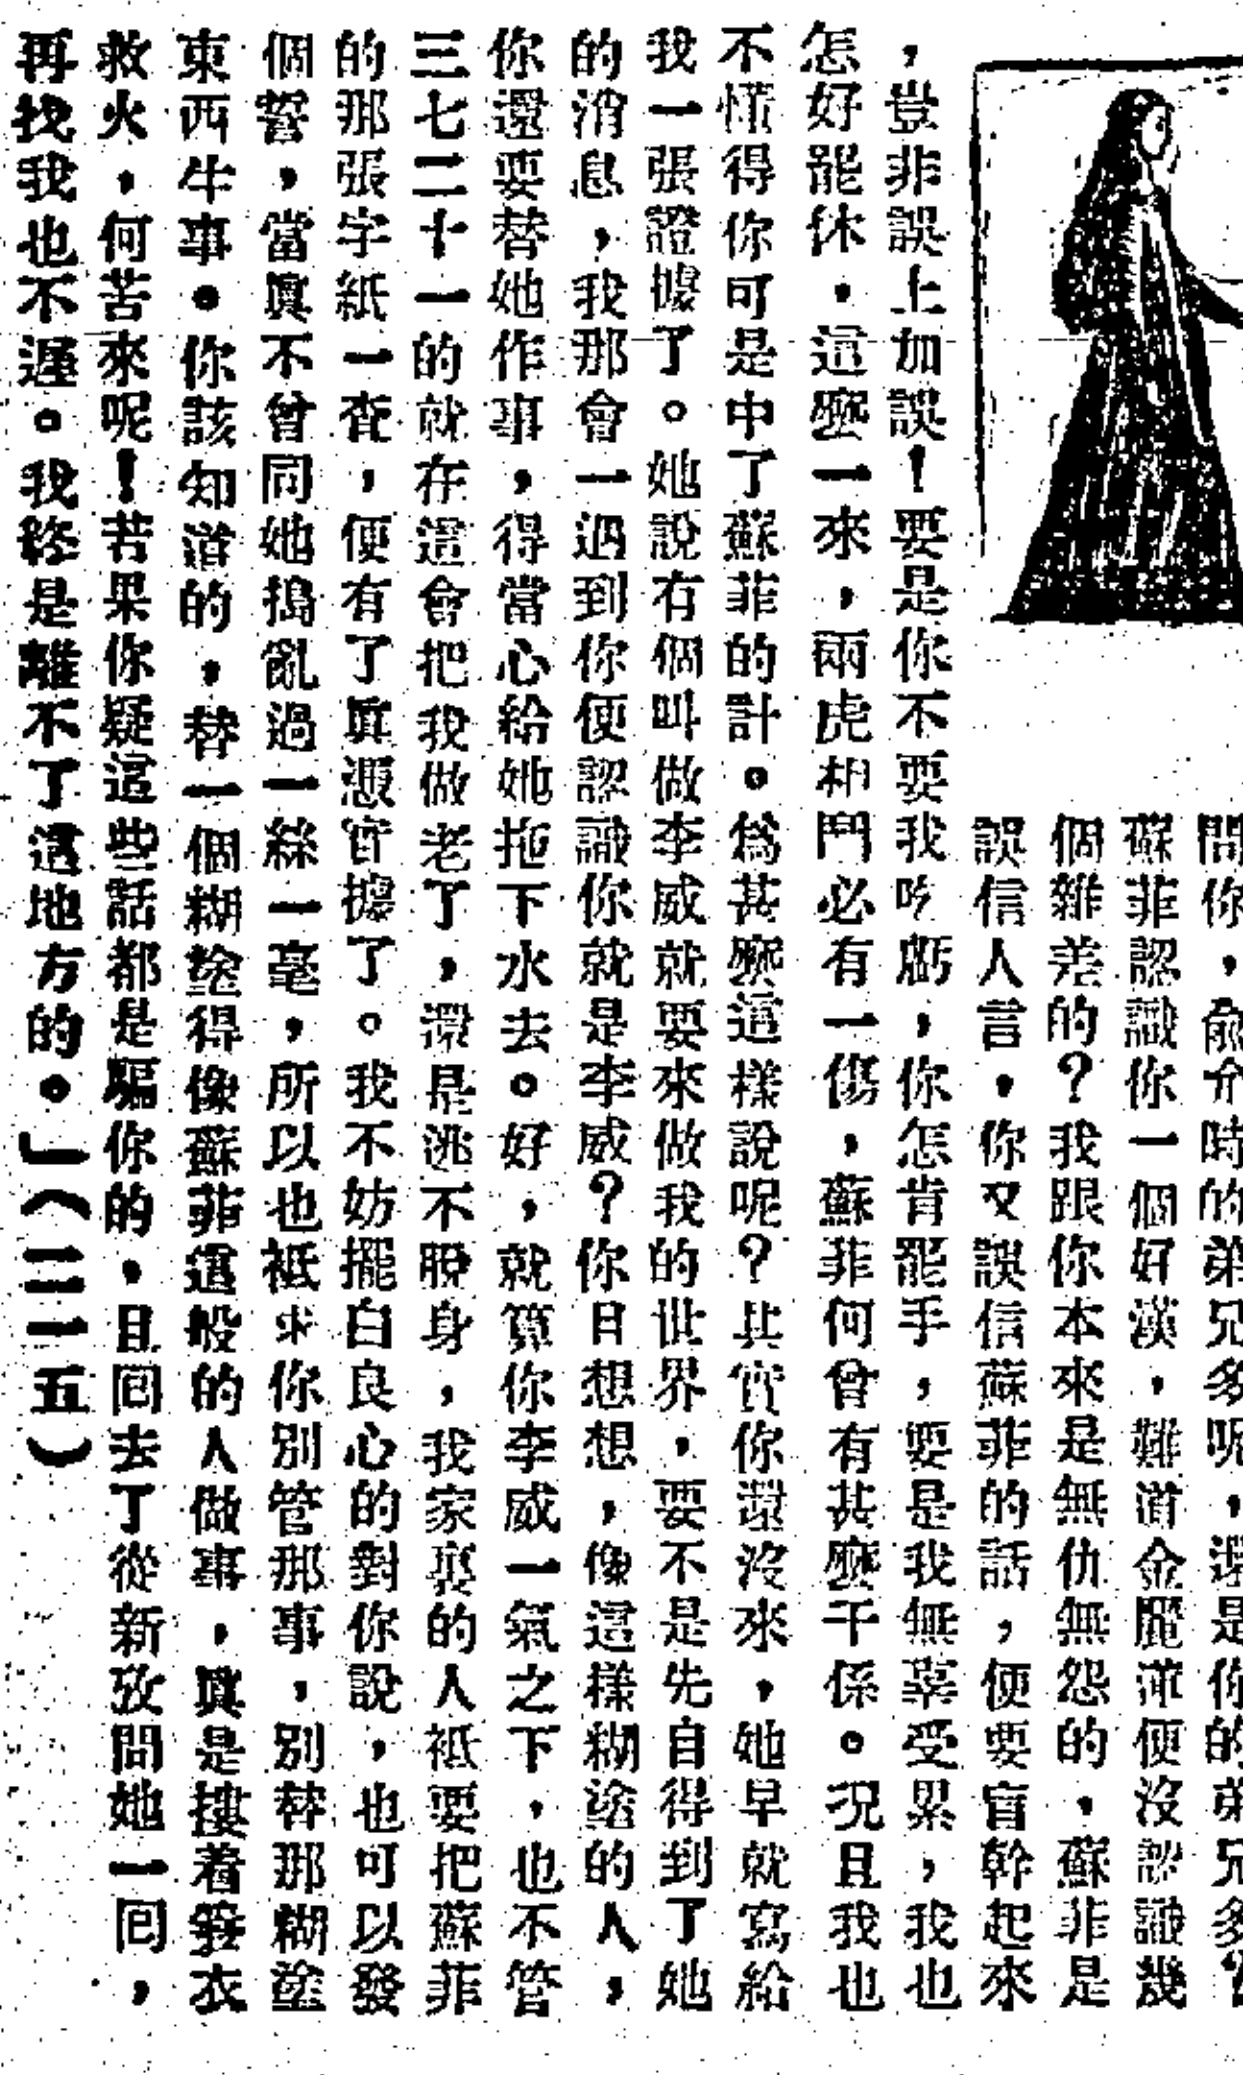 問你，俞介時的弟兄多呢，還是你的弟兄多？
蘇菲認識你一個好漢，難道金麗萍便沒認識幾
個雜差的？我跟你本來是無仇無怨的，蘇菲是
誤信人言，你又誤信蘇菲的話，便要盲幹起來
，豈非誤上加誤！要是你不要我吃虧，你怎肯罷手，要是我無辜受累，我也
怎好罷休，這麼一來，兩虎相鬥必有一傷，蘇菲何曾有甚麼干係。況且我也
不懂得你可是中了蘇菲的計。為甚麼這樣說呢？其實你還沒來，她早就寫給
我一張證據了。她說有個叫做李威就要來做我的世界，要不是先自得到了她
的消息，我那會一遇到你便認識你就是李威？你日想想，像這樣糊塗的人，
你還要替她作事，得當心給她拖下水去。好，就算你李威一氣之下，也不管
三七二十一的就在這會把我做老了，還是逃不脫身，我家裏的人祗要把蘇菲
的那張字紙一查，便有了眞憑實據了。我不妨擺白良心的對你說，也可以發
個誓，當眞不曾同她搗亂過一絲一毫，所以也祗求你別管那事，別替那糊塗
東西牛事。你該知道的，替一個糊塗得像蘇菲這般的人做事，眞是摟着簑衣
救火，何苦來呢！若果你疑這些話都是騙你的，且回去了從新攷問她一回，
再找我也不遲。我終是離不了這地方的。」（二一五）